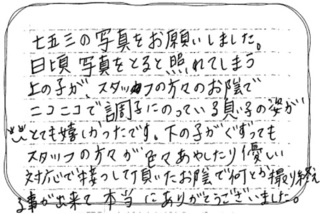 七五三の写真をお願いしました。
日頃写真をとると照れてしまう
上の子が、スタッフの方々のお陰で
ニコニコで調子にのっている息子の姿が
とても嬉しかったです。下の子がぐずっても
スタッフの方々が色々あやしたり優しい
対応で接っして頂いたお陰で何とか撮り終え
る事が出来て本当にありがとうございました。